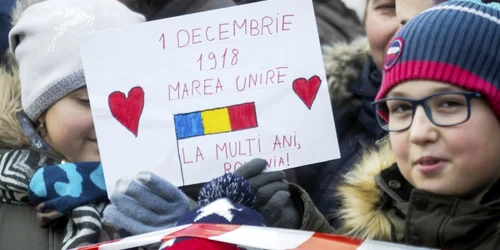 1 DECEMBRIE
1918
MAREA UNIRE
LA MULȚI ANI,
ROMÂNIA!